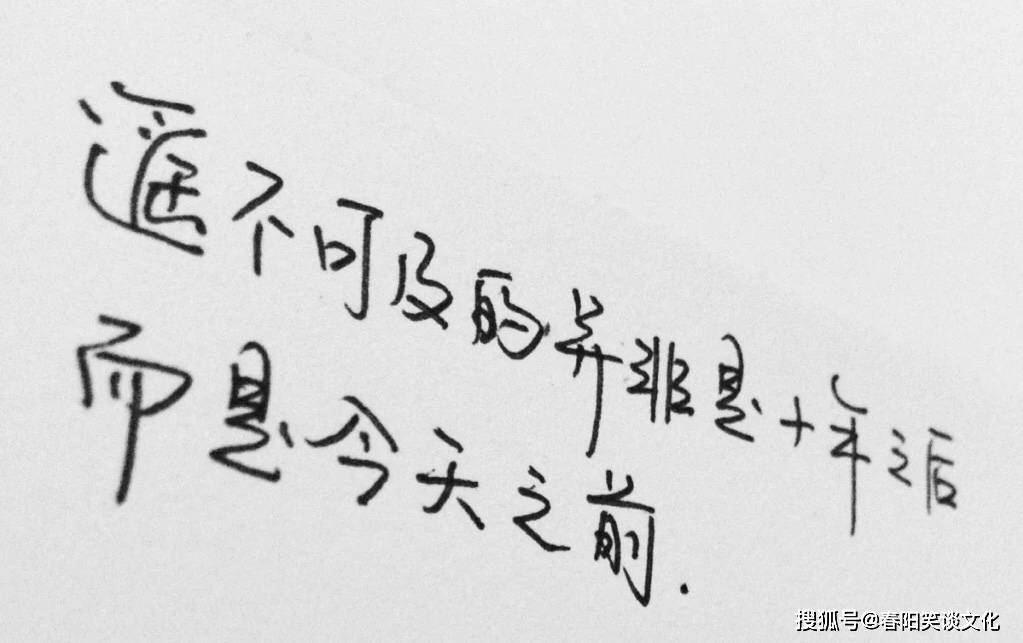 遥不可及的并非是十年之后
而是今天之前.
搜狐号@春阳笑谈文化